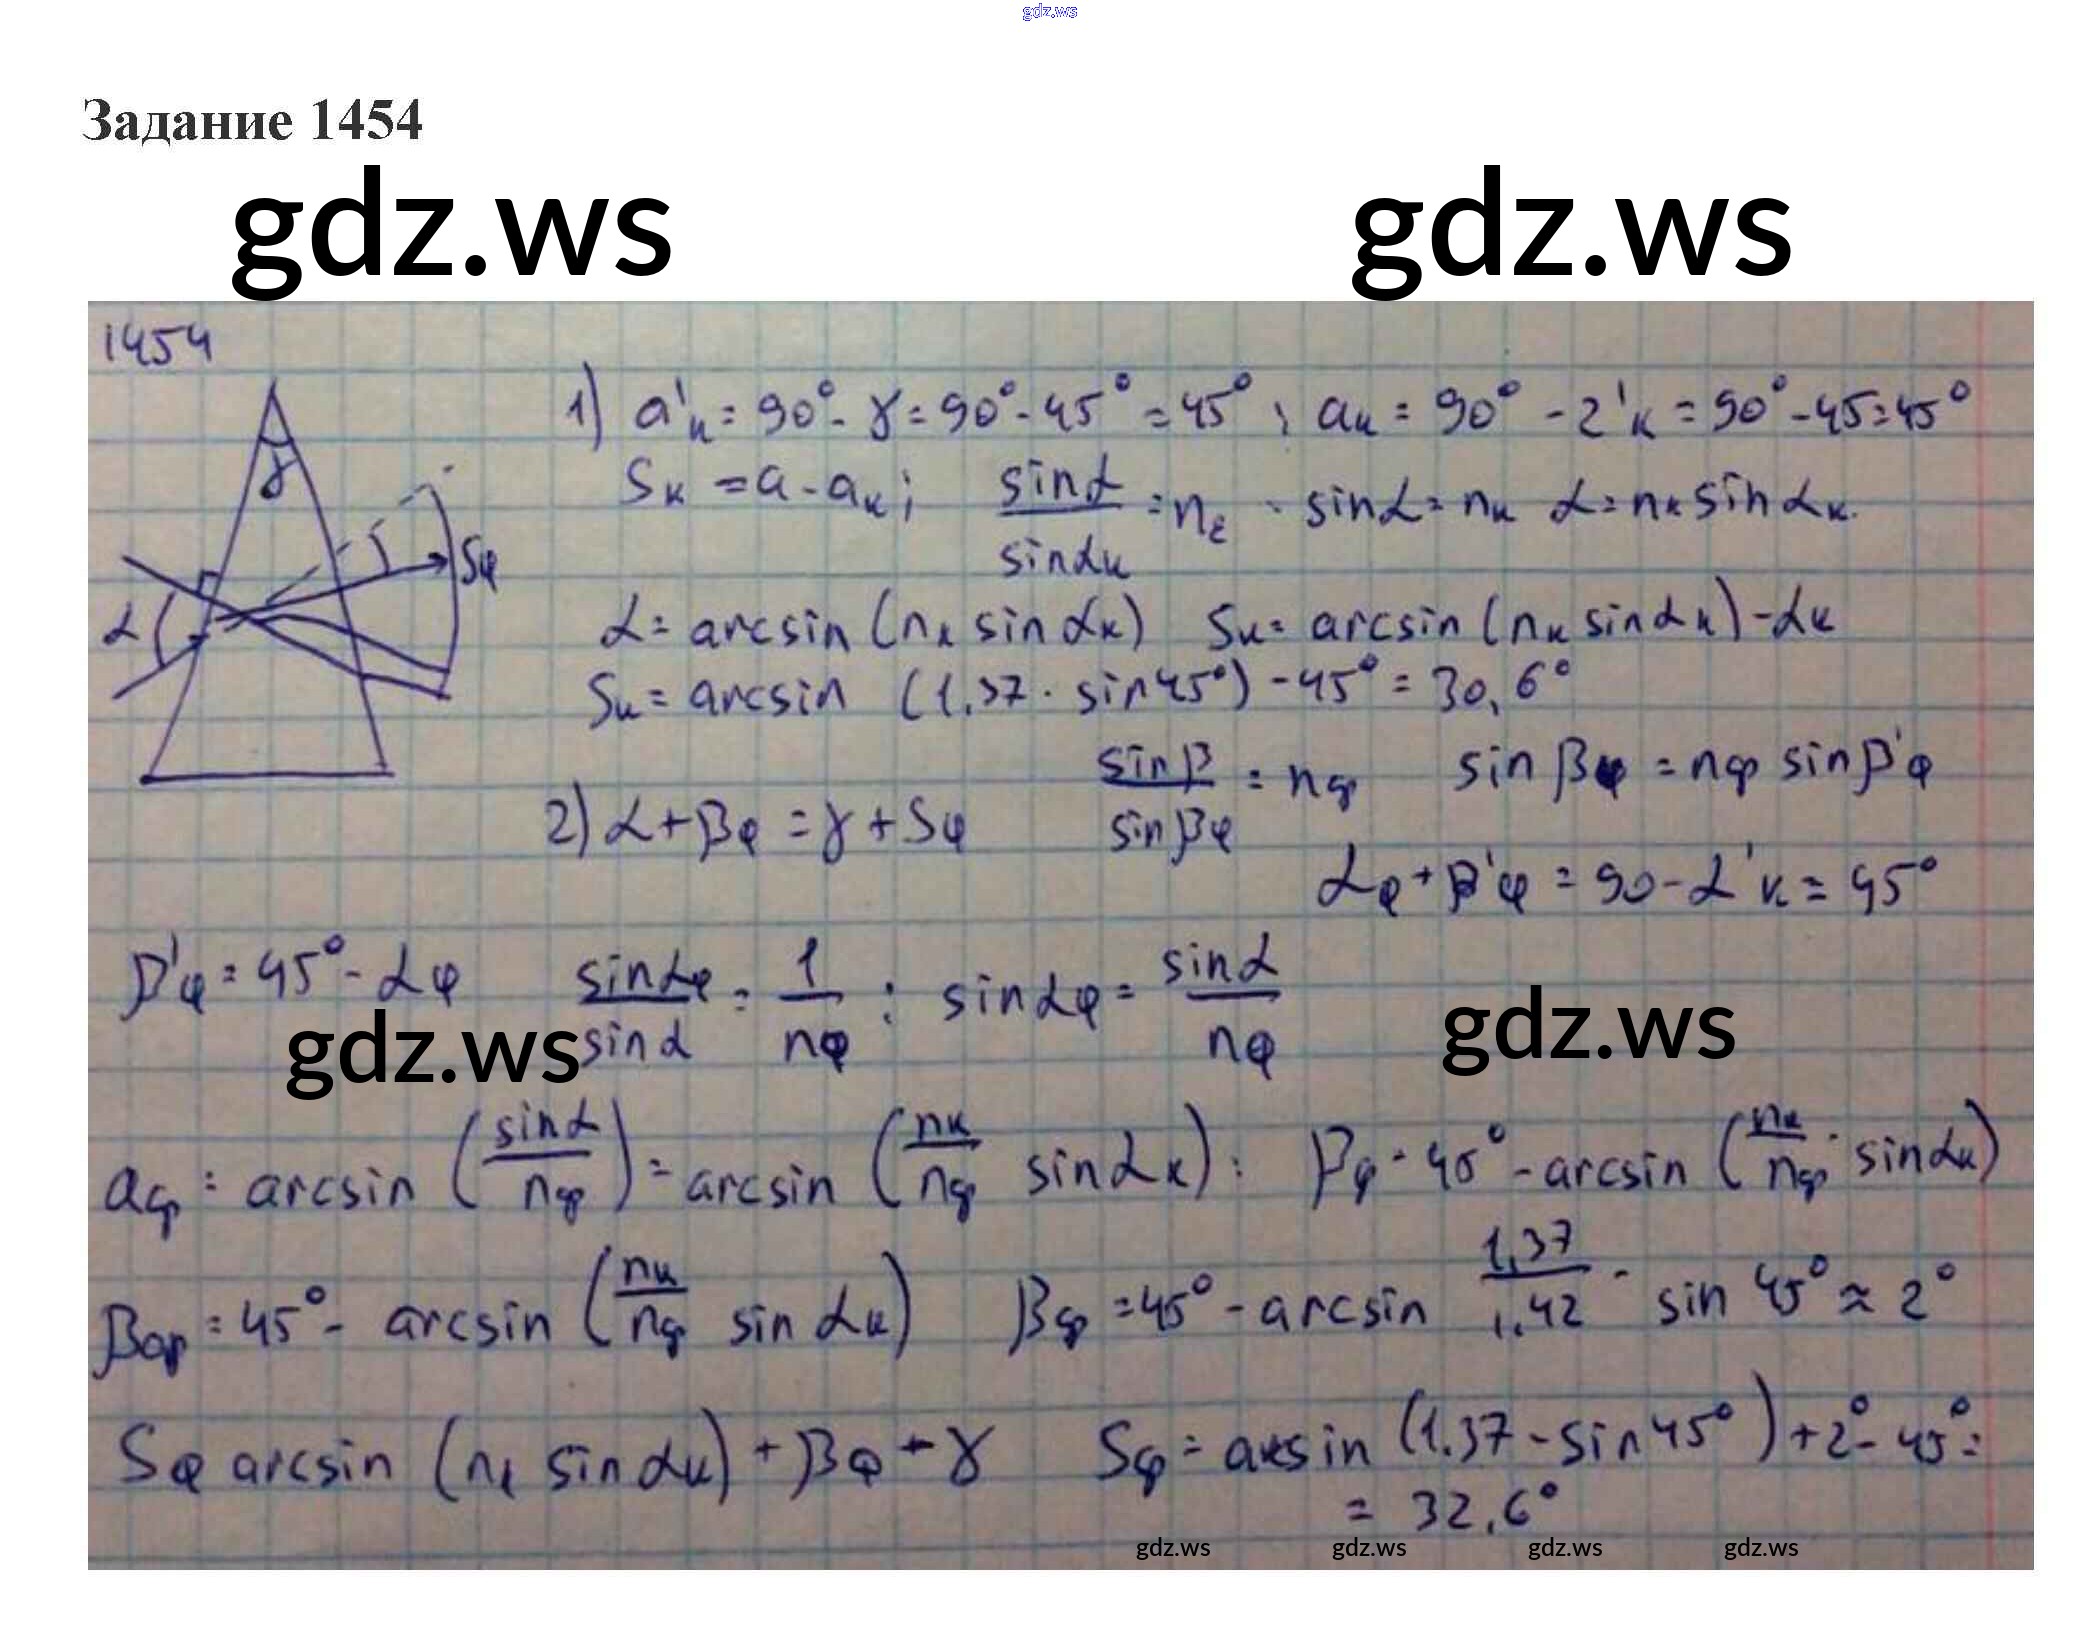 gdz.ws
Задание 1454
gdz.ws gdz.ws
1454
γ
α
Sφ
1) a'к = 90° - γ = 90° - 45° = 45° ; aк = 90° - 2'к = 90° - 45 = 45°
Sк = a - aк ; sinα / sinαк = n₂ · sinα = nк α = nк sin αк.
α = arcsin (nк sin αк) Sк = arcsin (nк sin αк) - αк
Sк = arcsin (1,37 · sin 45°) - 45° = 30,6°
2) α + βφ = γ + Sφ sin β / sin βφ = nφ sin βφ = nφ sin β'φ
αφ + β'φ = 90 - α'к = 45°
β'φ = 45° - αφ sin αφ / sin α = 1 / nφ : sin αφ = sin α / nφ
gdz.ws gdz.ws
aφ = arcsin (sin α / nφ) = arcsin (nк / nφ sin αк) : βφ = 45° - arcsin (nк / nφ · sin αк)
βφ = 45° - arcsin (nк / nφ sin αк) βφ = 45° - arcsin 1,37 / 1,42 · sin 45° ≈ 2°
Sφ arcsin (nк sin αк) + βφ - γ Sφ = arcsin (1.37 - sin 45°) + 2° - 45° =
= 32,6°
gdz.ws gdz.ws gdz.ws gdz.ws